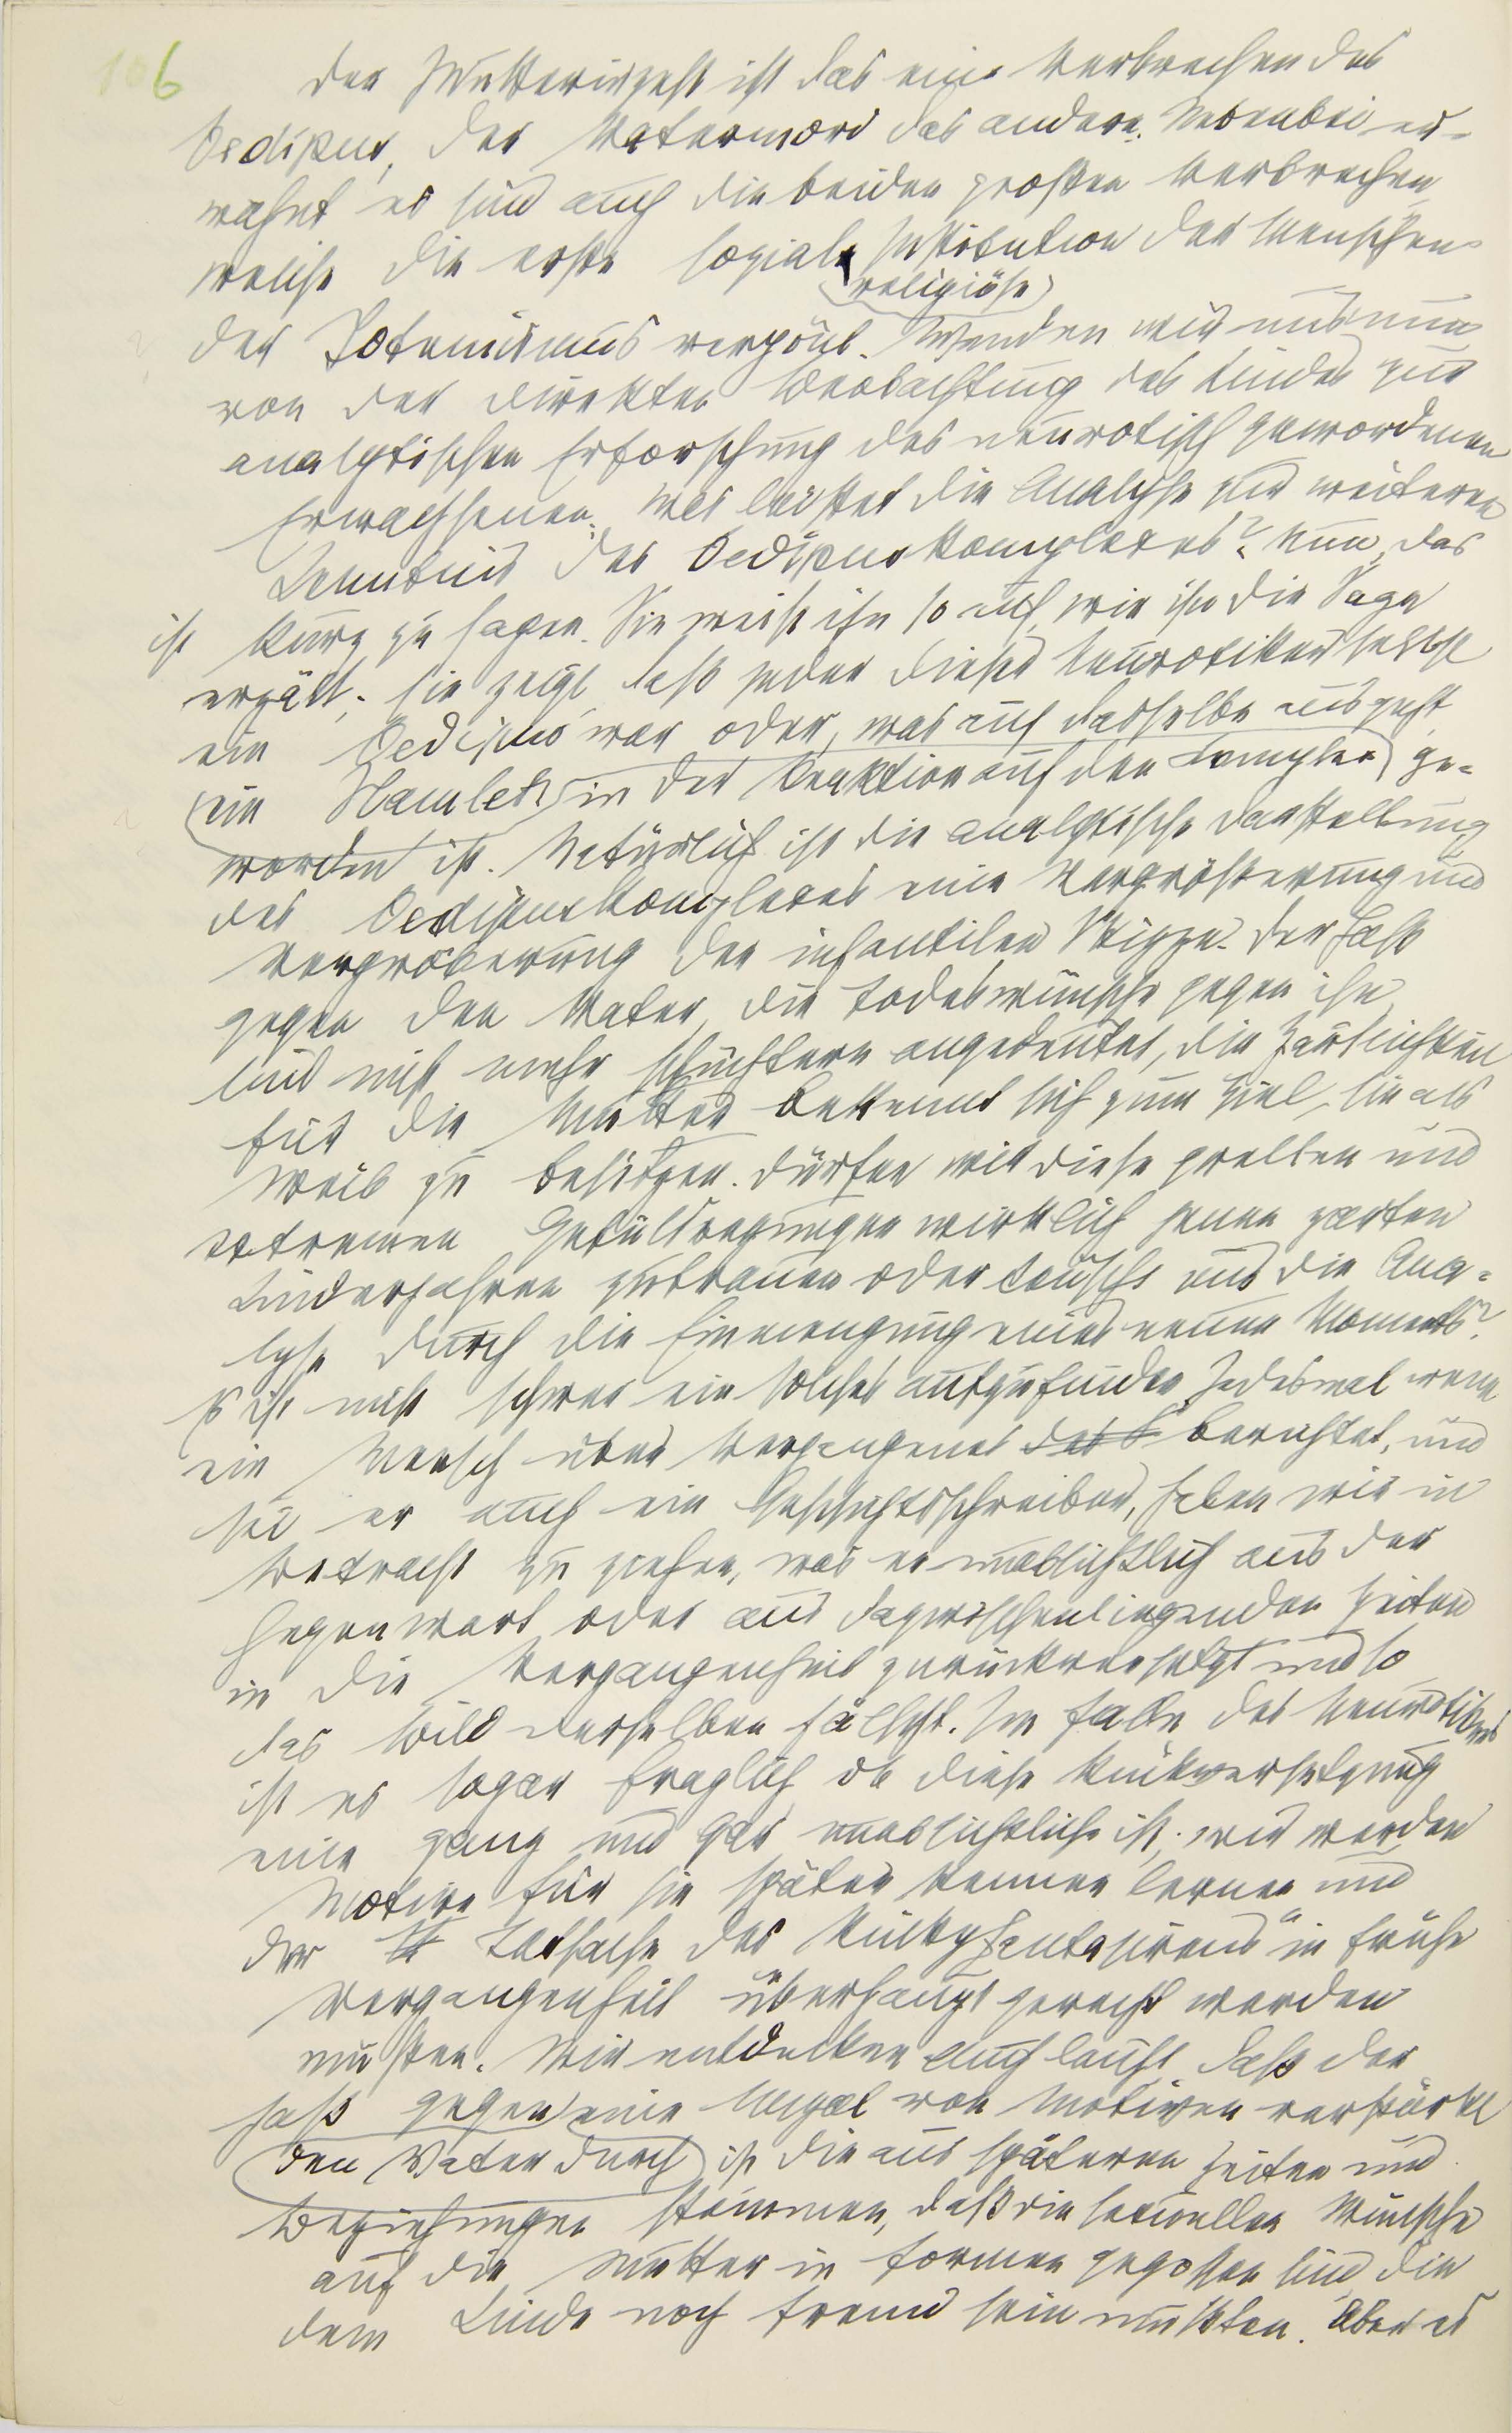 106
Der Mutterinzest ist das eine Verbrechen des
Oedipus, der Vatermord das andere. Nebenbei er-
wähnt es sind auch die beiden großen Verbrechen
welche die erste soziale Institution der Menschen
(religiöse)
der Totemismus verpönt. Wenden wir uns nun
von der direkten Beobachtung des Kindes zur
analytischen Erforschung des neurotisch gewordenen
Erwachsenen. Was leistet die Analyse zur weiteren
Kenntnis des Oedipuskomplexes? Nun, das
ist kurz zu sagen. Sie weist ihn so auf, wie ihn die Sage
erzält; sie zeigt, daß jeder dieser Neurotiker selbst
ein Oedipus war oder, was auf dasselbe ausgeht,
(ein Hamlet) in der Reaktion auf den Komplex) ge-
worden ist. Natürlich ist die analytische Darstellung
des Oedipuskomplexes eine Vergrößerung und
Vergröberung der infantilen Skizze. Der Haß
gegen den Vater, die Todeswünsche gegen ihn,
sind nicht mehr schüchtern angedeutet, die Zärtlichkeit
für die Mutter bekennt sich zum Ziel, sie als
Weib zu besitzen. Dürfen wir diese grellen und
extremen Gefülsregungen wirklich jenen zarten
Kinderjahren zutrauen oder täuscht uns die Ana-
lyse durch die Einmengung eines neuen Moments?
Es ist nicht schwer ein solches aufzufinden. Jedesmal wenn
ein Mensch über Vergangenes berichtet, und
sei er auch ein Geschichtsschreiber, haben wir in
Betracht zu ziehen, was er unabsichtlich aus der
Gegenwart oder aus dazwischenliegenden Zeiten
in die Vergangenheit zurückversetzt und so
das Bild derselben fälscht. Im Falle des Neurotikers
ist es sogar fraglich ob diese Rückversetzung
eine ganz und gar unabsichtliche ist; wir werden
Motive für sie später kennen lernen und
der Tatsache des „Rückphantasirens" in frühe
Vergangenheit überhaupt gerecht werden
müssen. Wir entdecken auch leicht daß der
Haß gegen eine Anzal von Motiven verstärkt
(den Vater durch) ist die aus späteren Zeiten und
Beziehungen stammen, daß die sexuellen Wünsche
auf die Mutter in Formen gegossen sind die
dem Kinde noch fremd sein mußten. Aber es